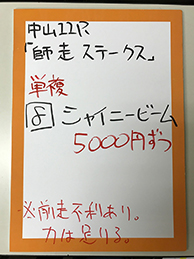 中山11R
「師走ステークス」
単複
8 シャイニービーム
5000円ずつ
※前走不利あり。
力は足りる。